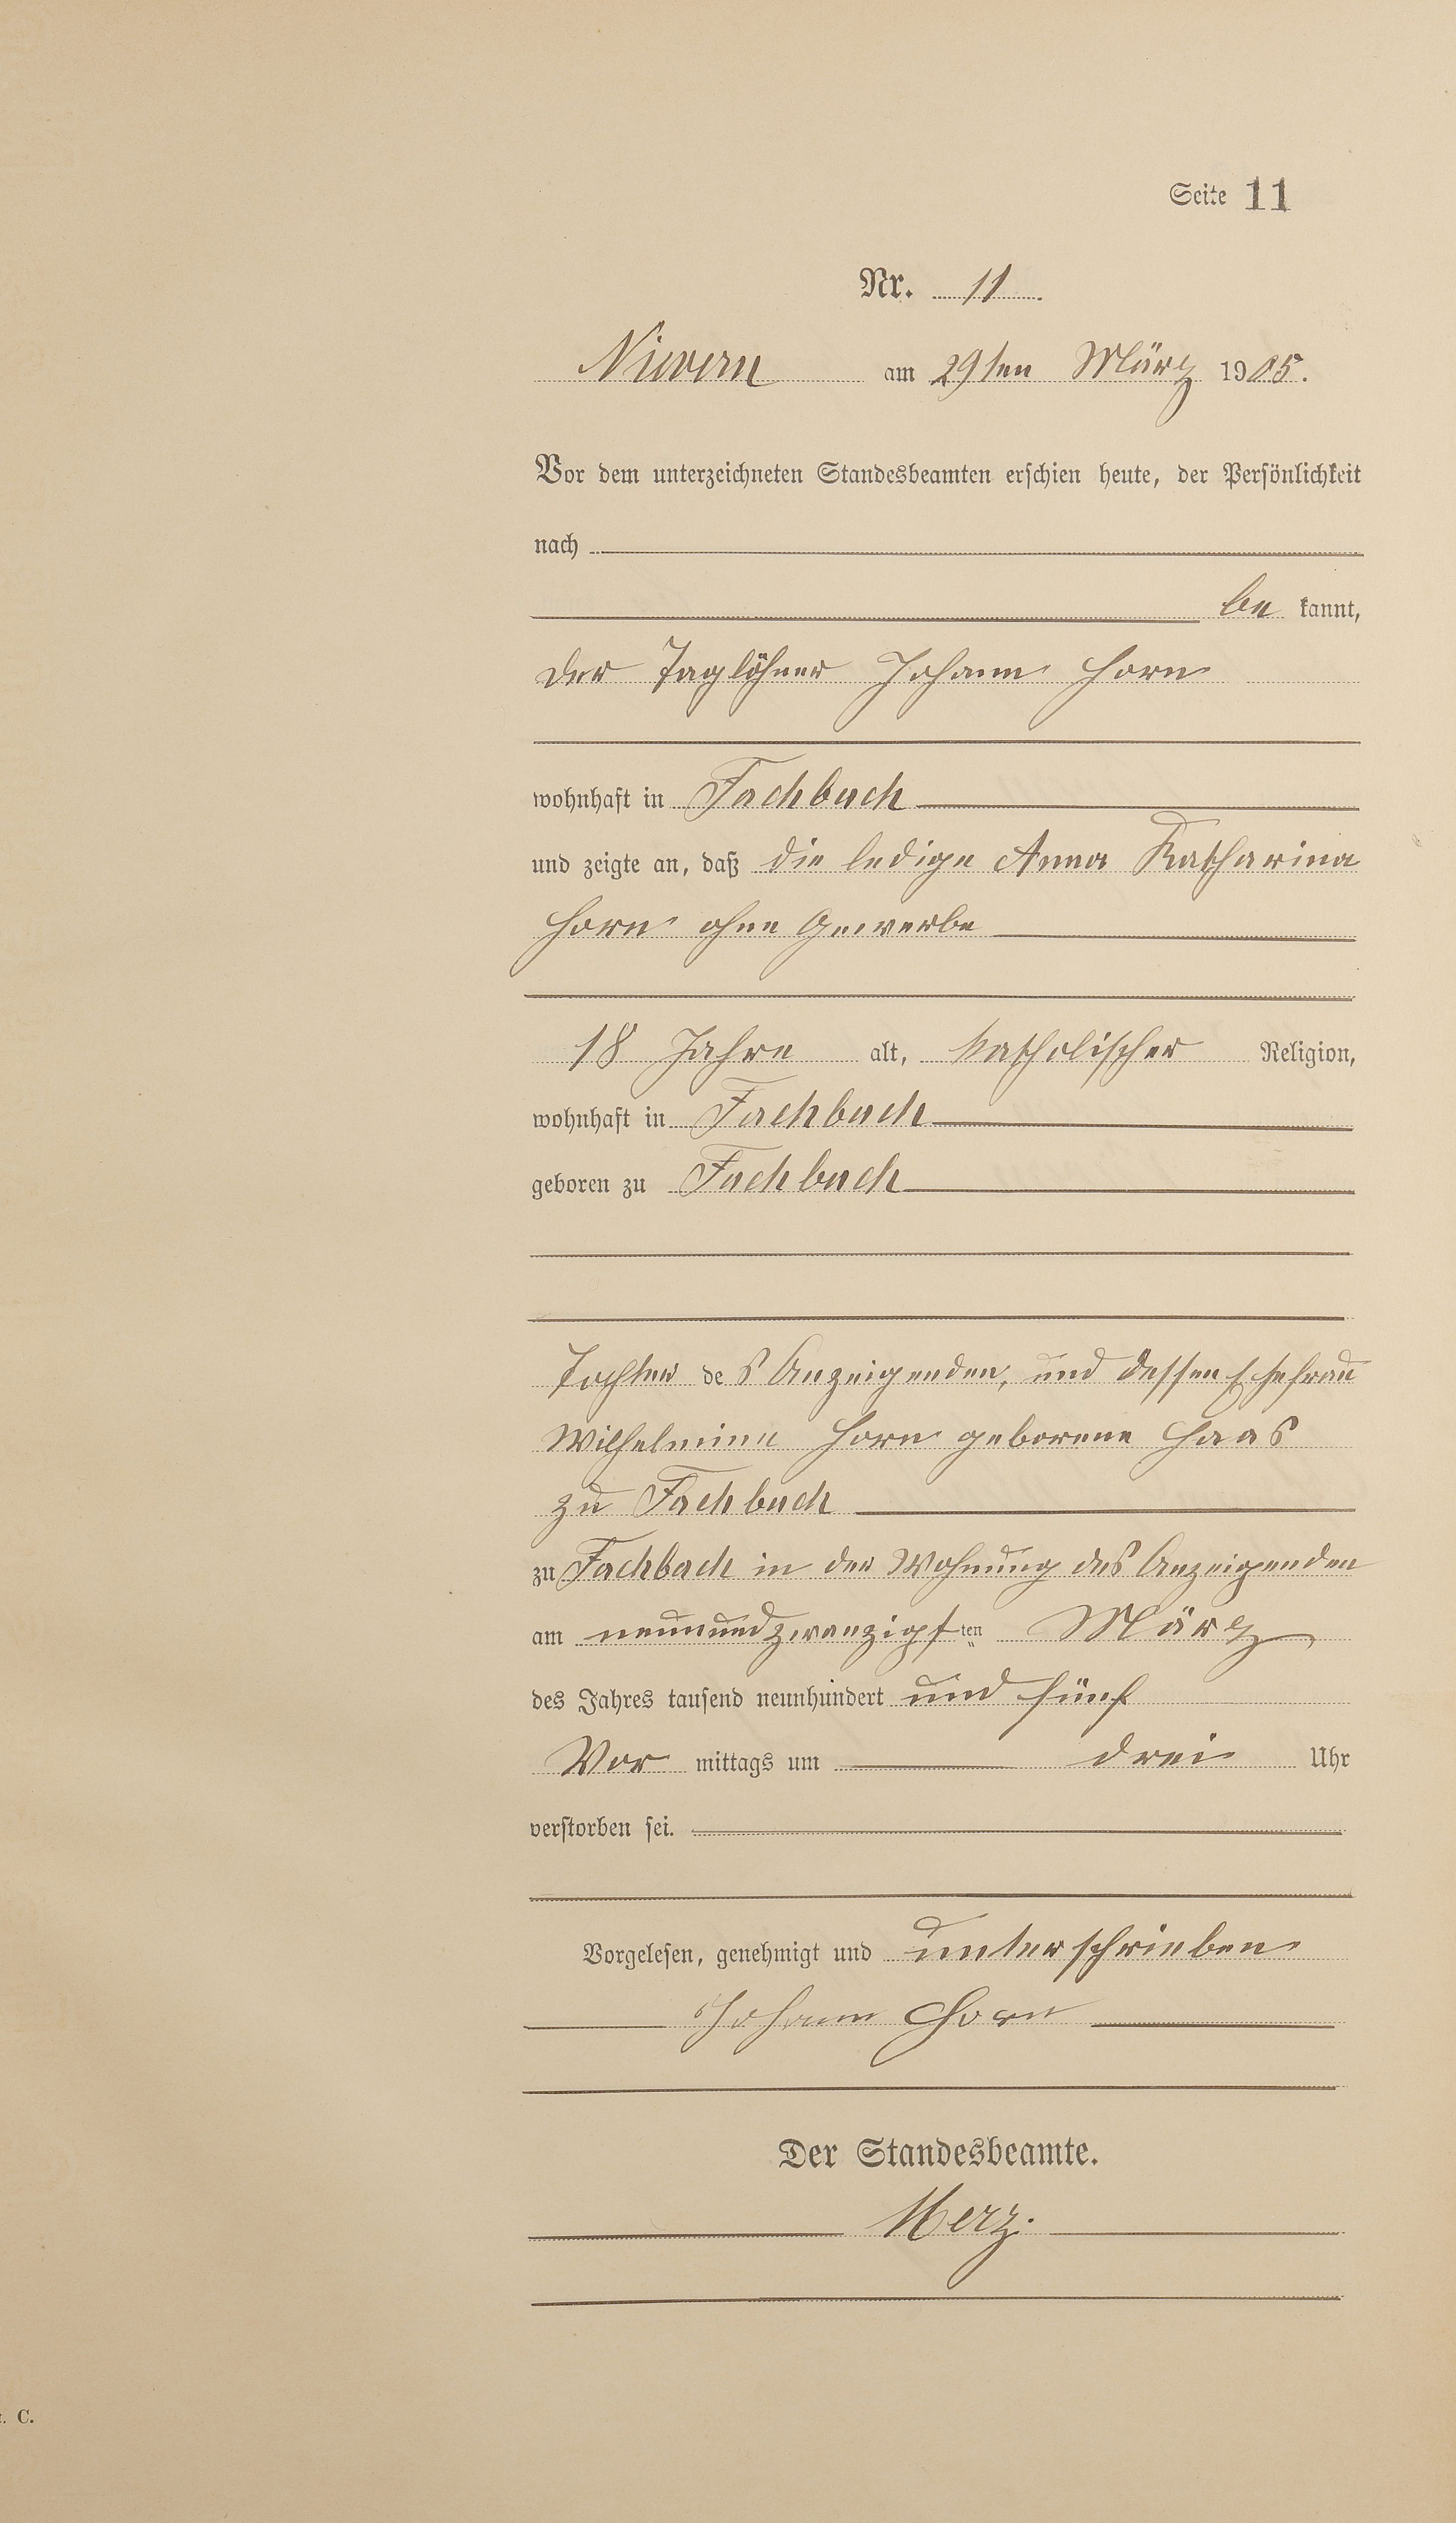 Seite 11
Nr. 11
Nievern am 29ten März 1905.
Vor dem unterzeichneten Standesbeamten erschien heute, der Persönlichkeit
nach
be kannt,
der Taglöhner Johann Horn
wohnhaft in Fachbach
und zeigte an, daß die ledige Anna Katharina
Horn ohne Gewerbe
18 Jahre alt, katholischer Religion,
wohnhaft in Fachbach
geboren zu Fachbach
Tochter des Anzeigenden, und dessen Ehefrau
Wilhelmine Horn geborene Haas
zu Fachbach
zu Fachbach in der Wohnung des Anzeigenden
am neunundzwanzigsten März
des Jahres tausend neunhundert und fünf
Vor mittags um drei Uhr
verstorben sei.
Vorgelesen, genehmigt und unterschrieben
Johann Horn
Der Standesbeamte.
Merz.
. C.